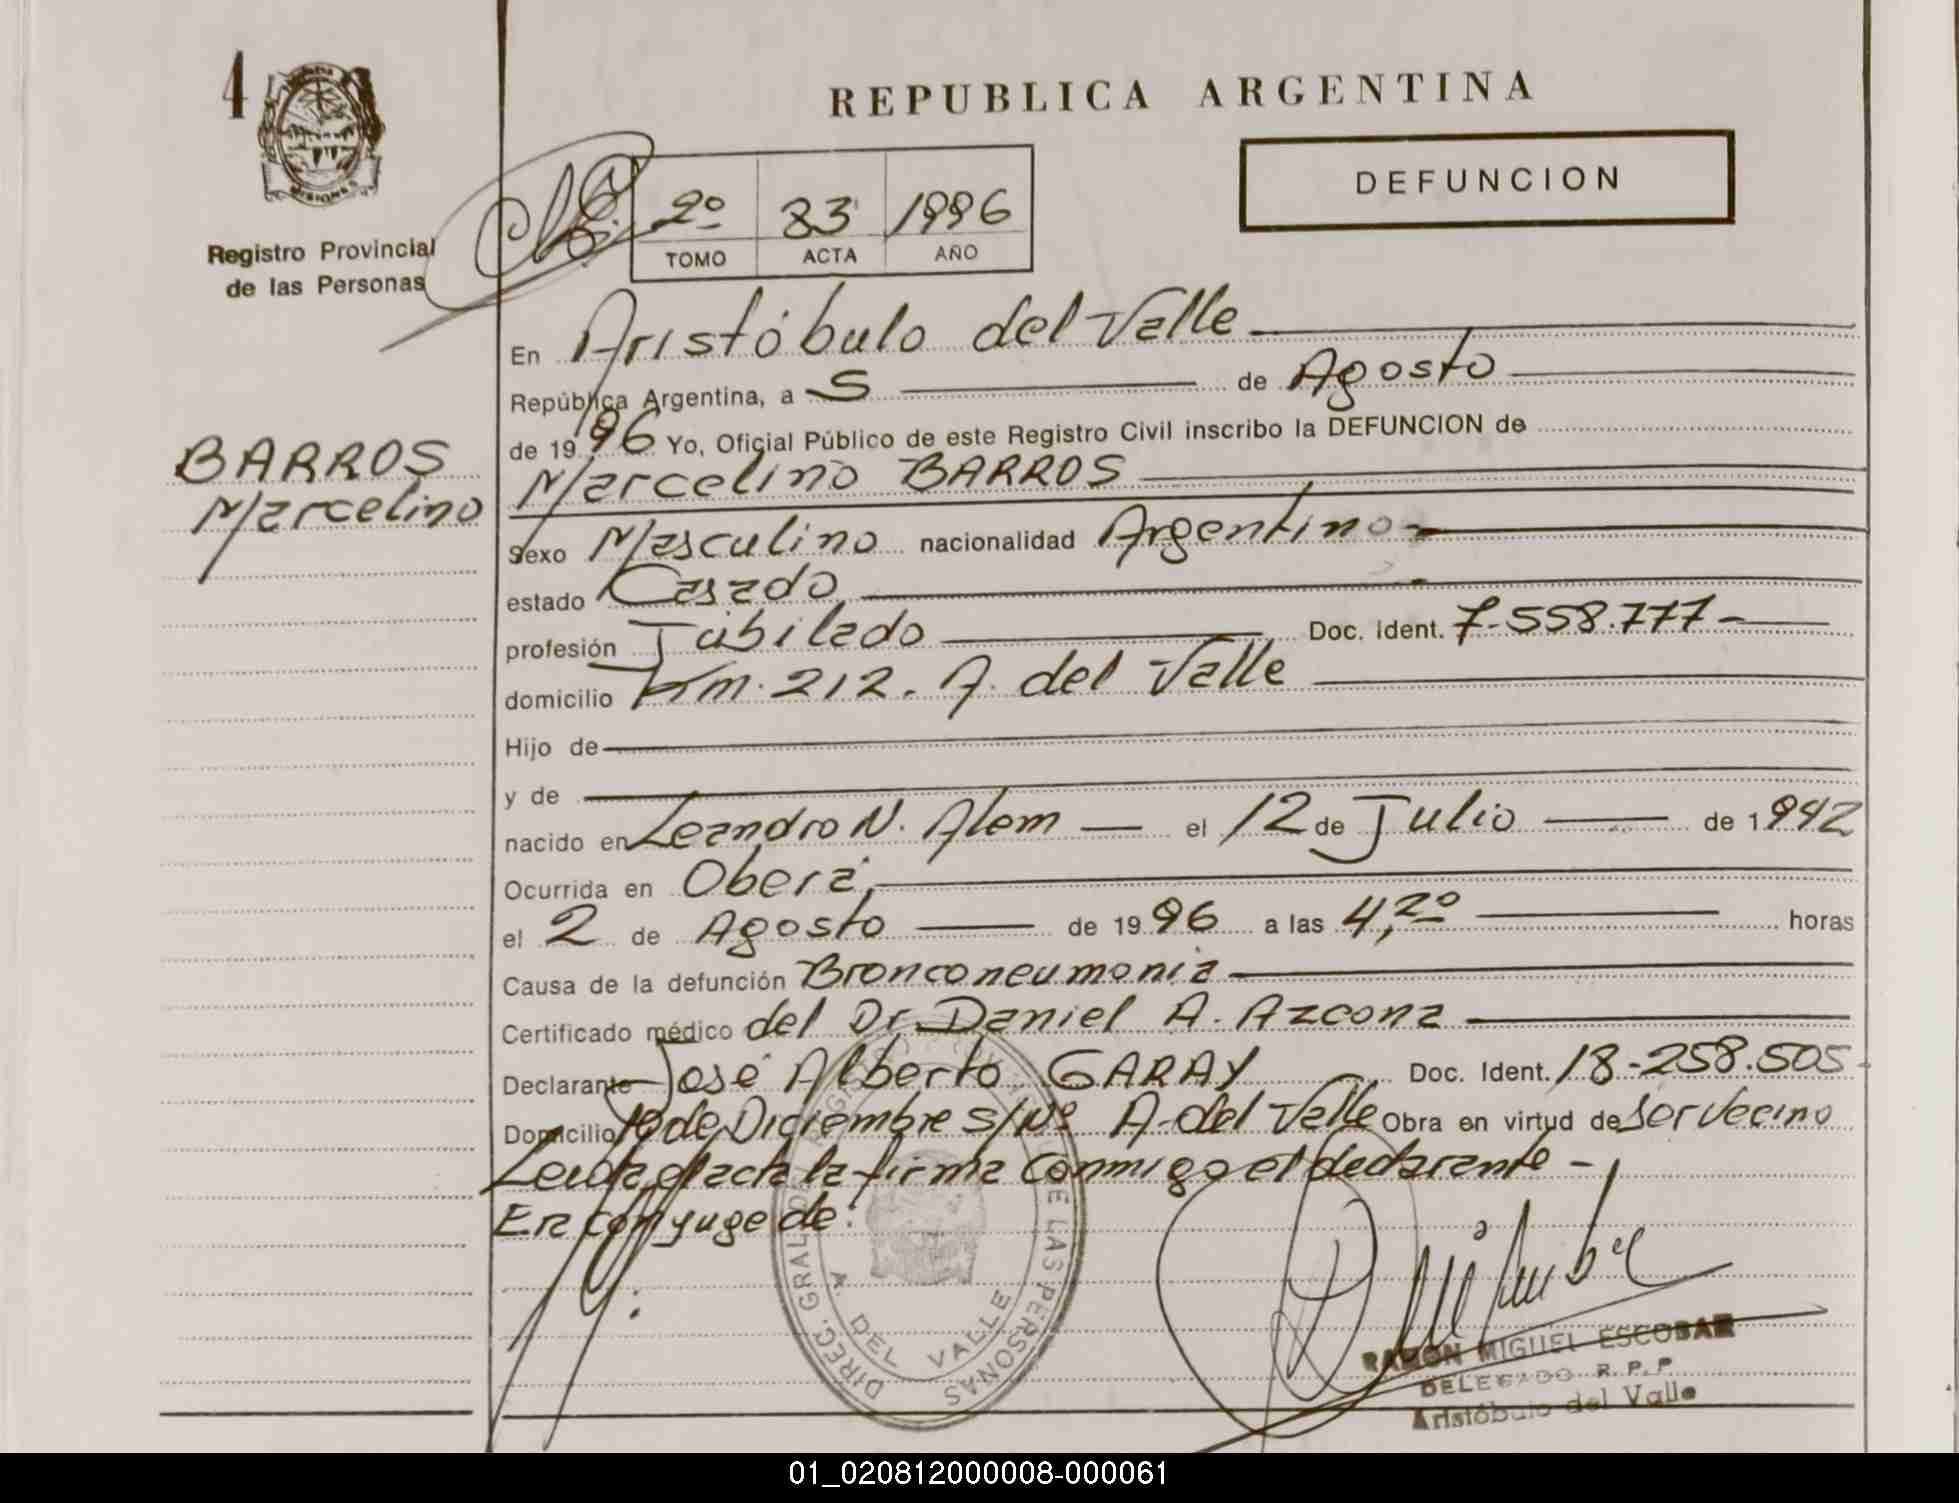 4
REPUBLICA ARGENTINA
DEFUNCION
MISIONES
Registro Provincial
de las Personas
2º 83 1996
TOMO ACTA AÑO
BARROS
Marcelino
En Aristóbulo del Valle
República Argentina, a 5 de Agosto
de 1996 Yo, Oficial Público de este Registro Civil inscribo la DEFUNCION de
Marcelino BARROS
Sexo Masculino nacionalidad Argentino
estado Casado
profesión Jubilado Doc. Ident. 7.558.777-
domicilio Km. 212. A. del Valle
Hijo de
y de
nacido en Leandro N. Alem el 12 de Julio de 1942
Ocurrida en Oberá,
el 2 de Agosto de 1996 a las 4,20 horas
Causa de la defunción Bronconeumonia
Certificado médico del Dr. Daniel A. Azcona
Declarante José Alberto GARAY Doc. Ident. 18-258.505-
Domicilio de Diciembre S/Nº A. del Valle Obra en virtud de ser Vecino
Leida el acta la firma conmigo el declarante -
Era conyuge de:
DIREC. GRAL. DE LAS PERSONAS
A. DEL VALLE
RAMON MIGUEL ESCOBAR
DELEGADO R.P.P.
Aristóbulo del Valle
01_020812000008-000061